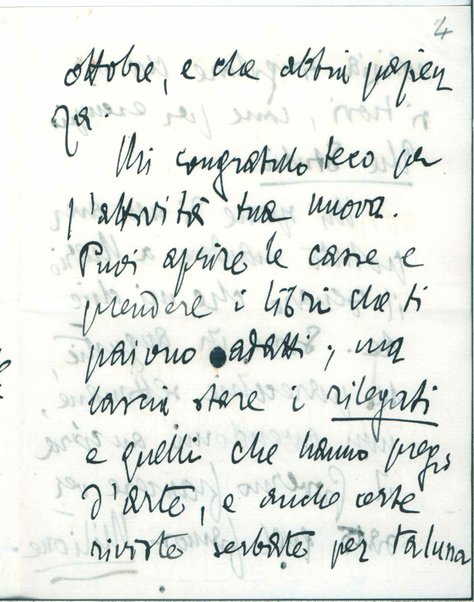 4
ottobre, e che abbia pazien
za.
Mi congratulo teco per
l'attività tua nuova.
Puoi aprire le casse e
prendere i libri che ti
paiono adatti; ma
lascia stare i rilegati
e quelli che hanno pregi
d'arte, e anche certe
riviste serbate per taluna